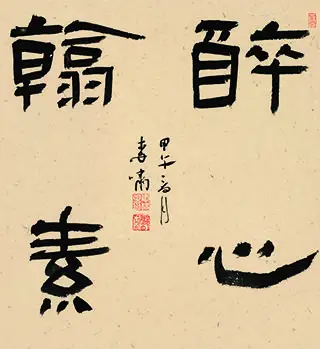 醉心
翰素
甲午 月
嘯